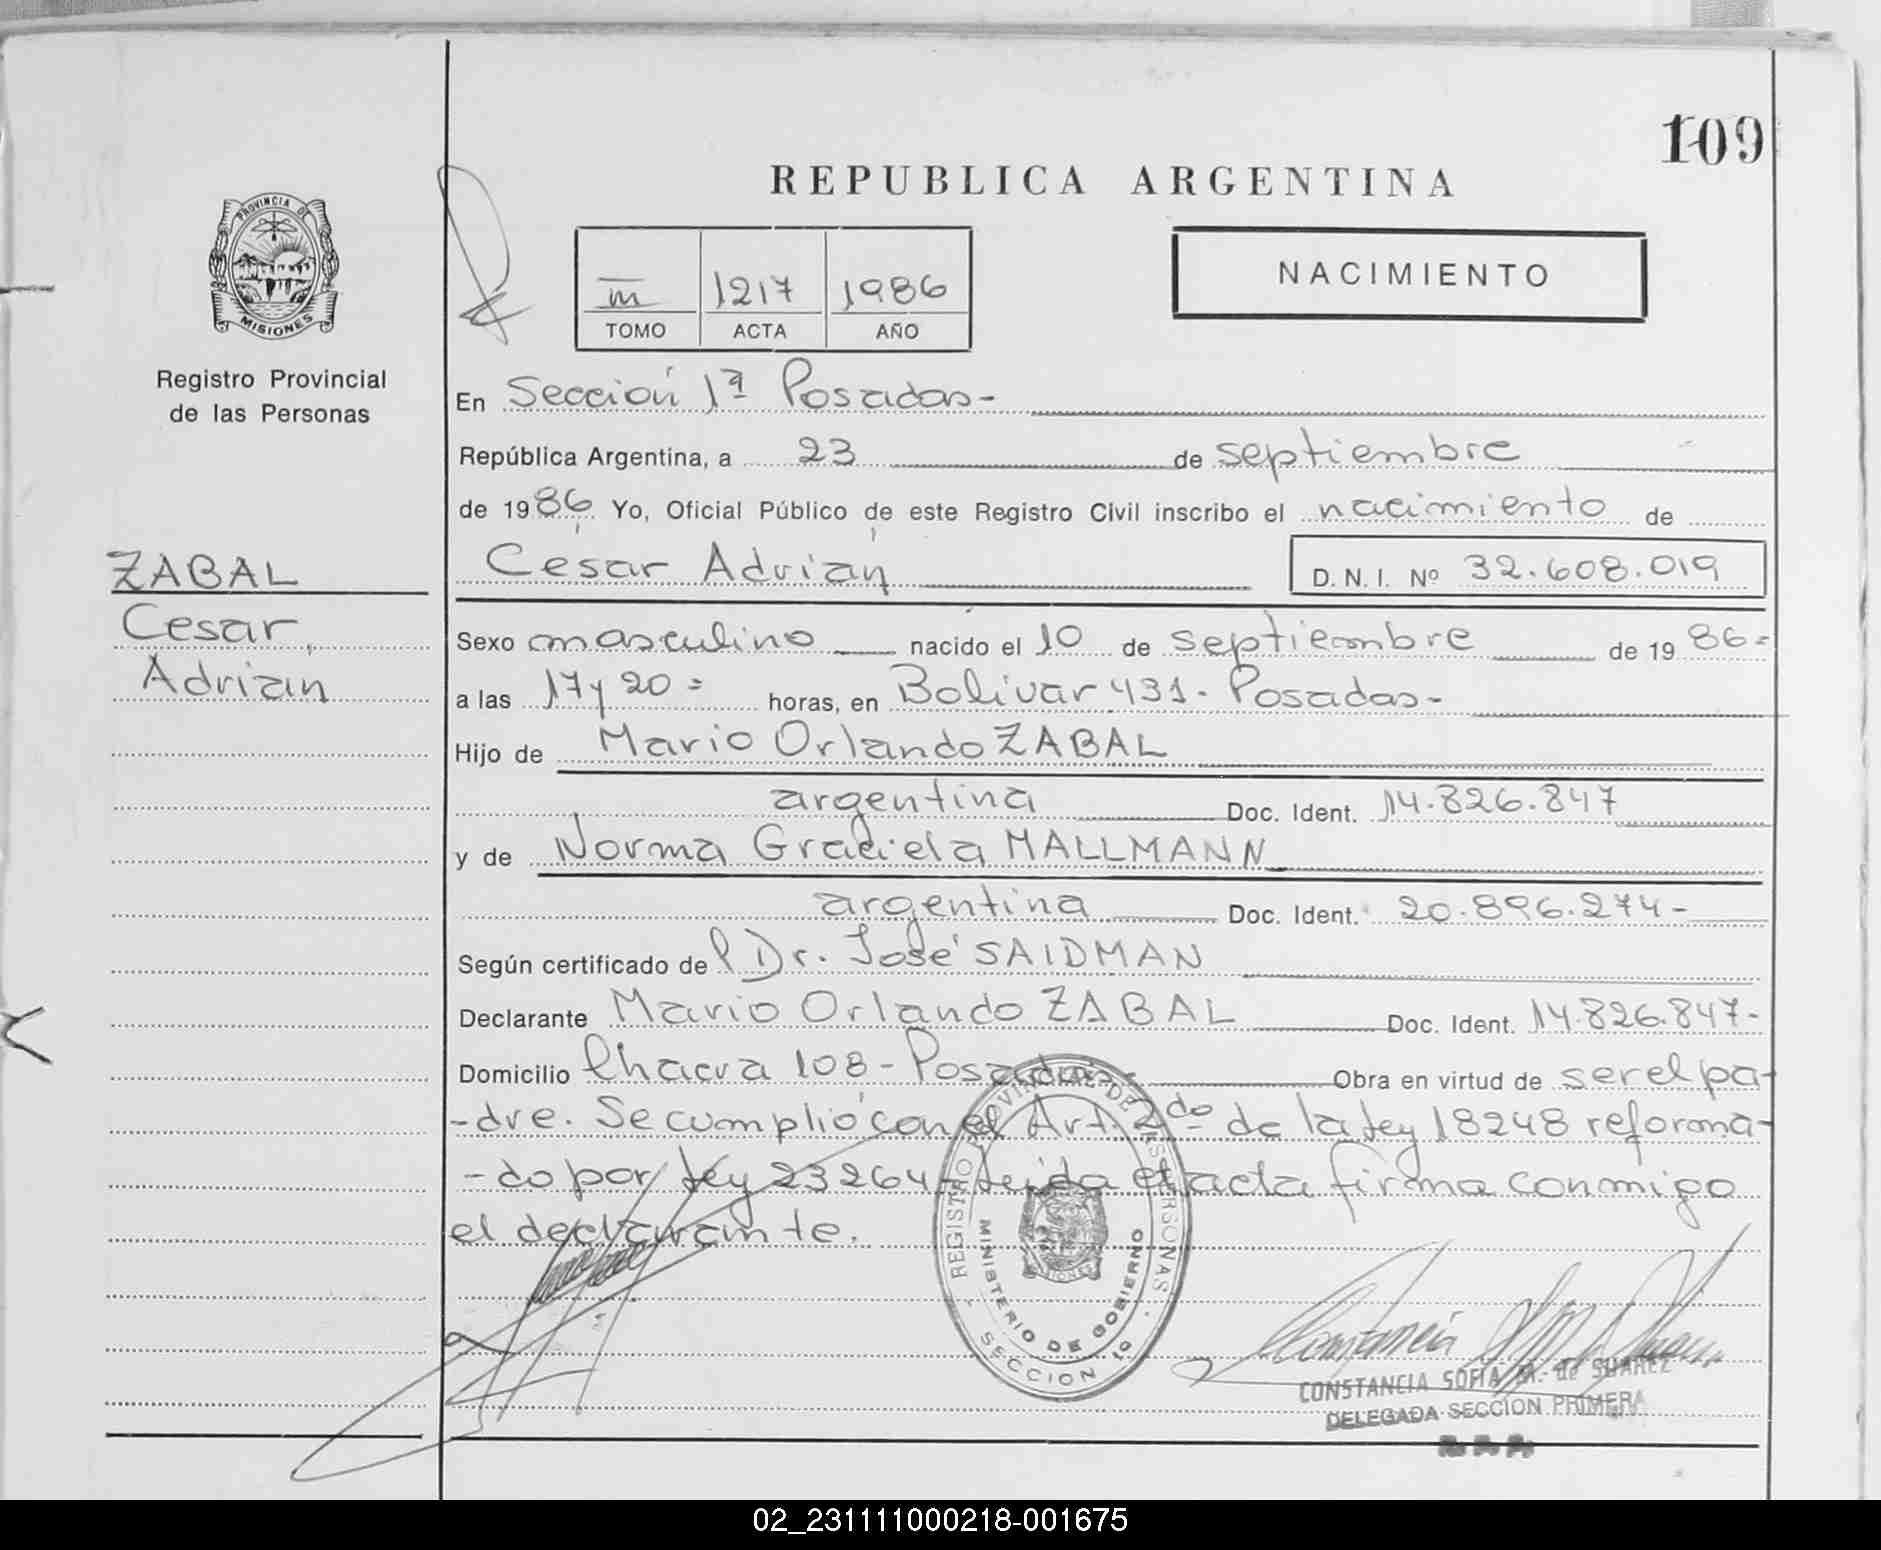 109
REPUBLICA ARGENTINA
PROVINCIA DE
MISIONES
Registro Provincial
de las Personas
III 1217 1986
TOMO ACTA AÑO
NACIMIENTO
En Sección 1ª Posadas-
República Argentina, a 23 de septiembre
de 1986 Yo, Oficial Público de este Registro Civil inscribo el nacimiento de
César Adrián D. N. I. Nº 32.608.019
ZABAL
Cesar
Adrián
Sexo masculino nacido el 10 de septiembre de 1986=
a las 17 y 20= horas, en Bolívar 431- Posadas-
Hijo de Mario Orlando ZABAL
argentina Doc. Ident. 14.826.847
y de Norma Graciela MALLMANN
argentina Doc. Ident. 20.896.274-
Según certificado del Dr. José SAIDMAN
Declarante Mario Orlando ZABAL Doc. Ident. 14.826.847-
Domicilio Chacra 108 - Posadas- Obra en virtud de ser el pa-
-dre. Se cumplió con el Art. 2do de la Ley 18248 reforma-
-do por Ley 23264- Leida el acta firma conmigo
el declarante.
REGISTRO PROVINCIAL DE LAS PERSONAS
MINISTERIO DE GOBIERNO
MISIONES
SECCION 1ª
CONSTANCIA SOFIA M. de SUAREZ
DELEGADA SECCION PRIMERA
02_231111000218-001675